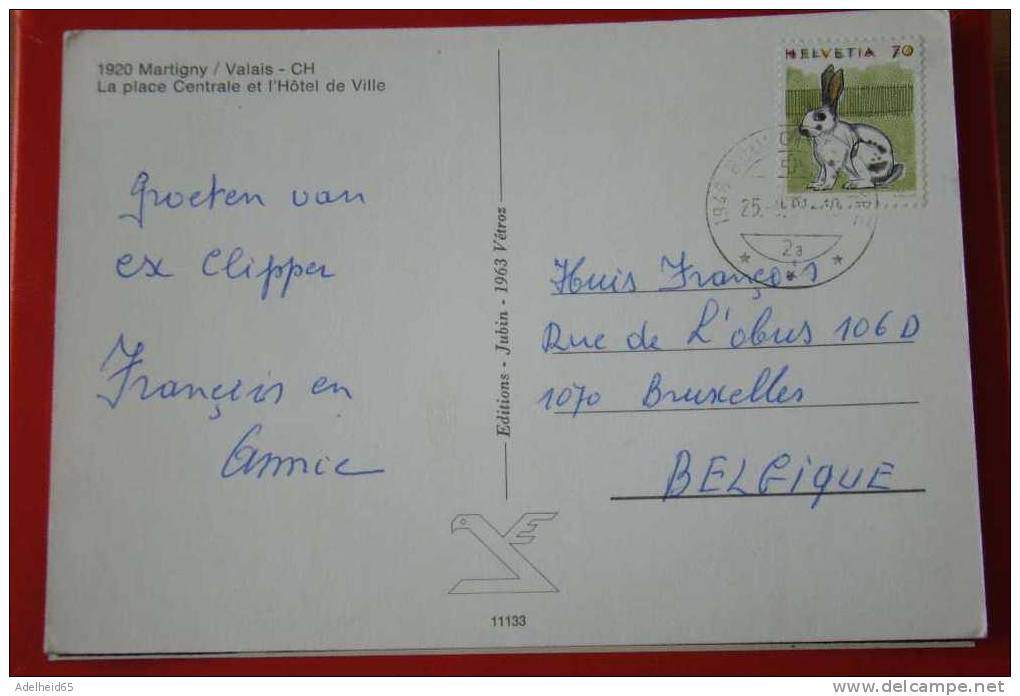 1920 Martigny / Valais - CH
La place Centrale et l'Hôtel de Ville
HELVETIA 70
1948
25.
2a
Groeten van
ex Clipper
François en
Annie
Editions - Jubin - 1963 Vétroz
Huis François
Rue de L'obus 106 D
1070 Bruxelles
BELGIQUE
11133
Adelheid65
www.delcampe.net